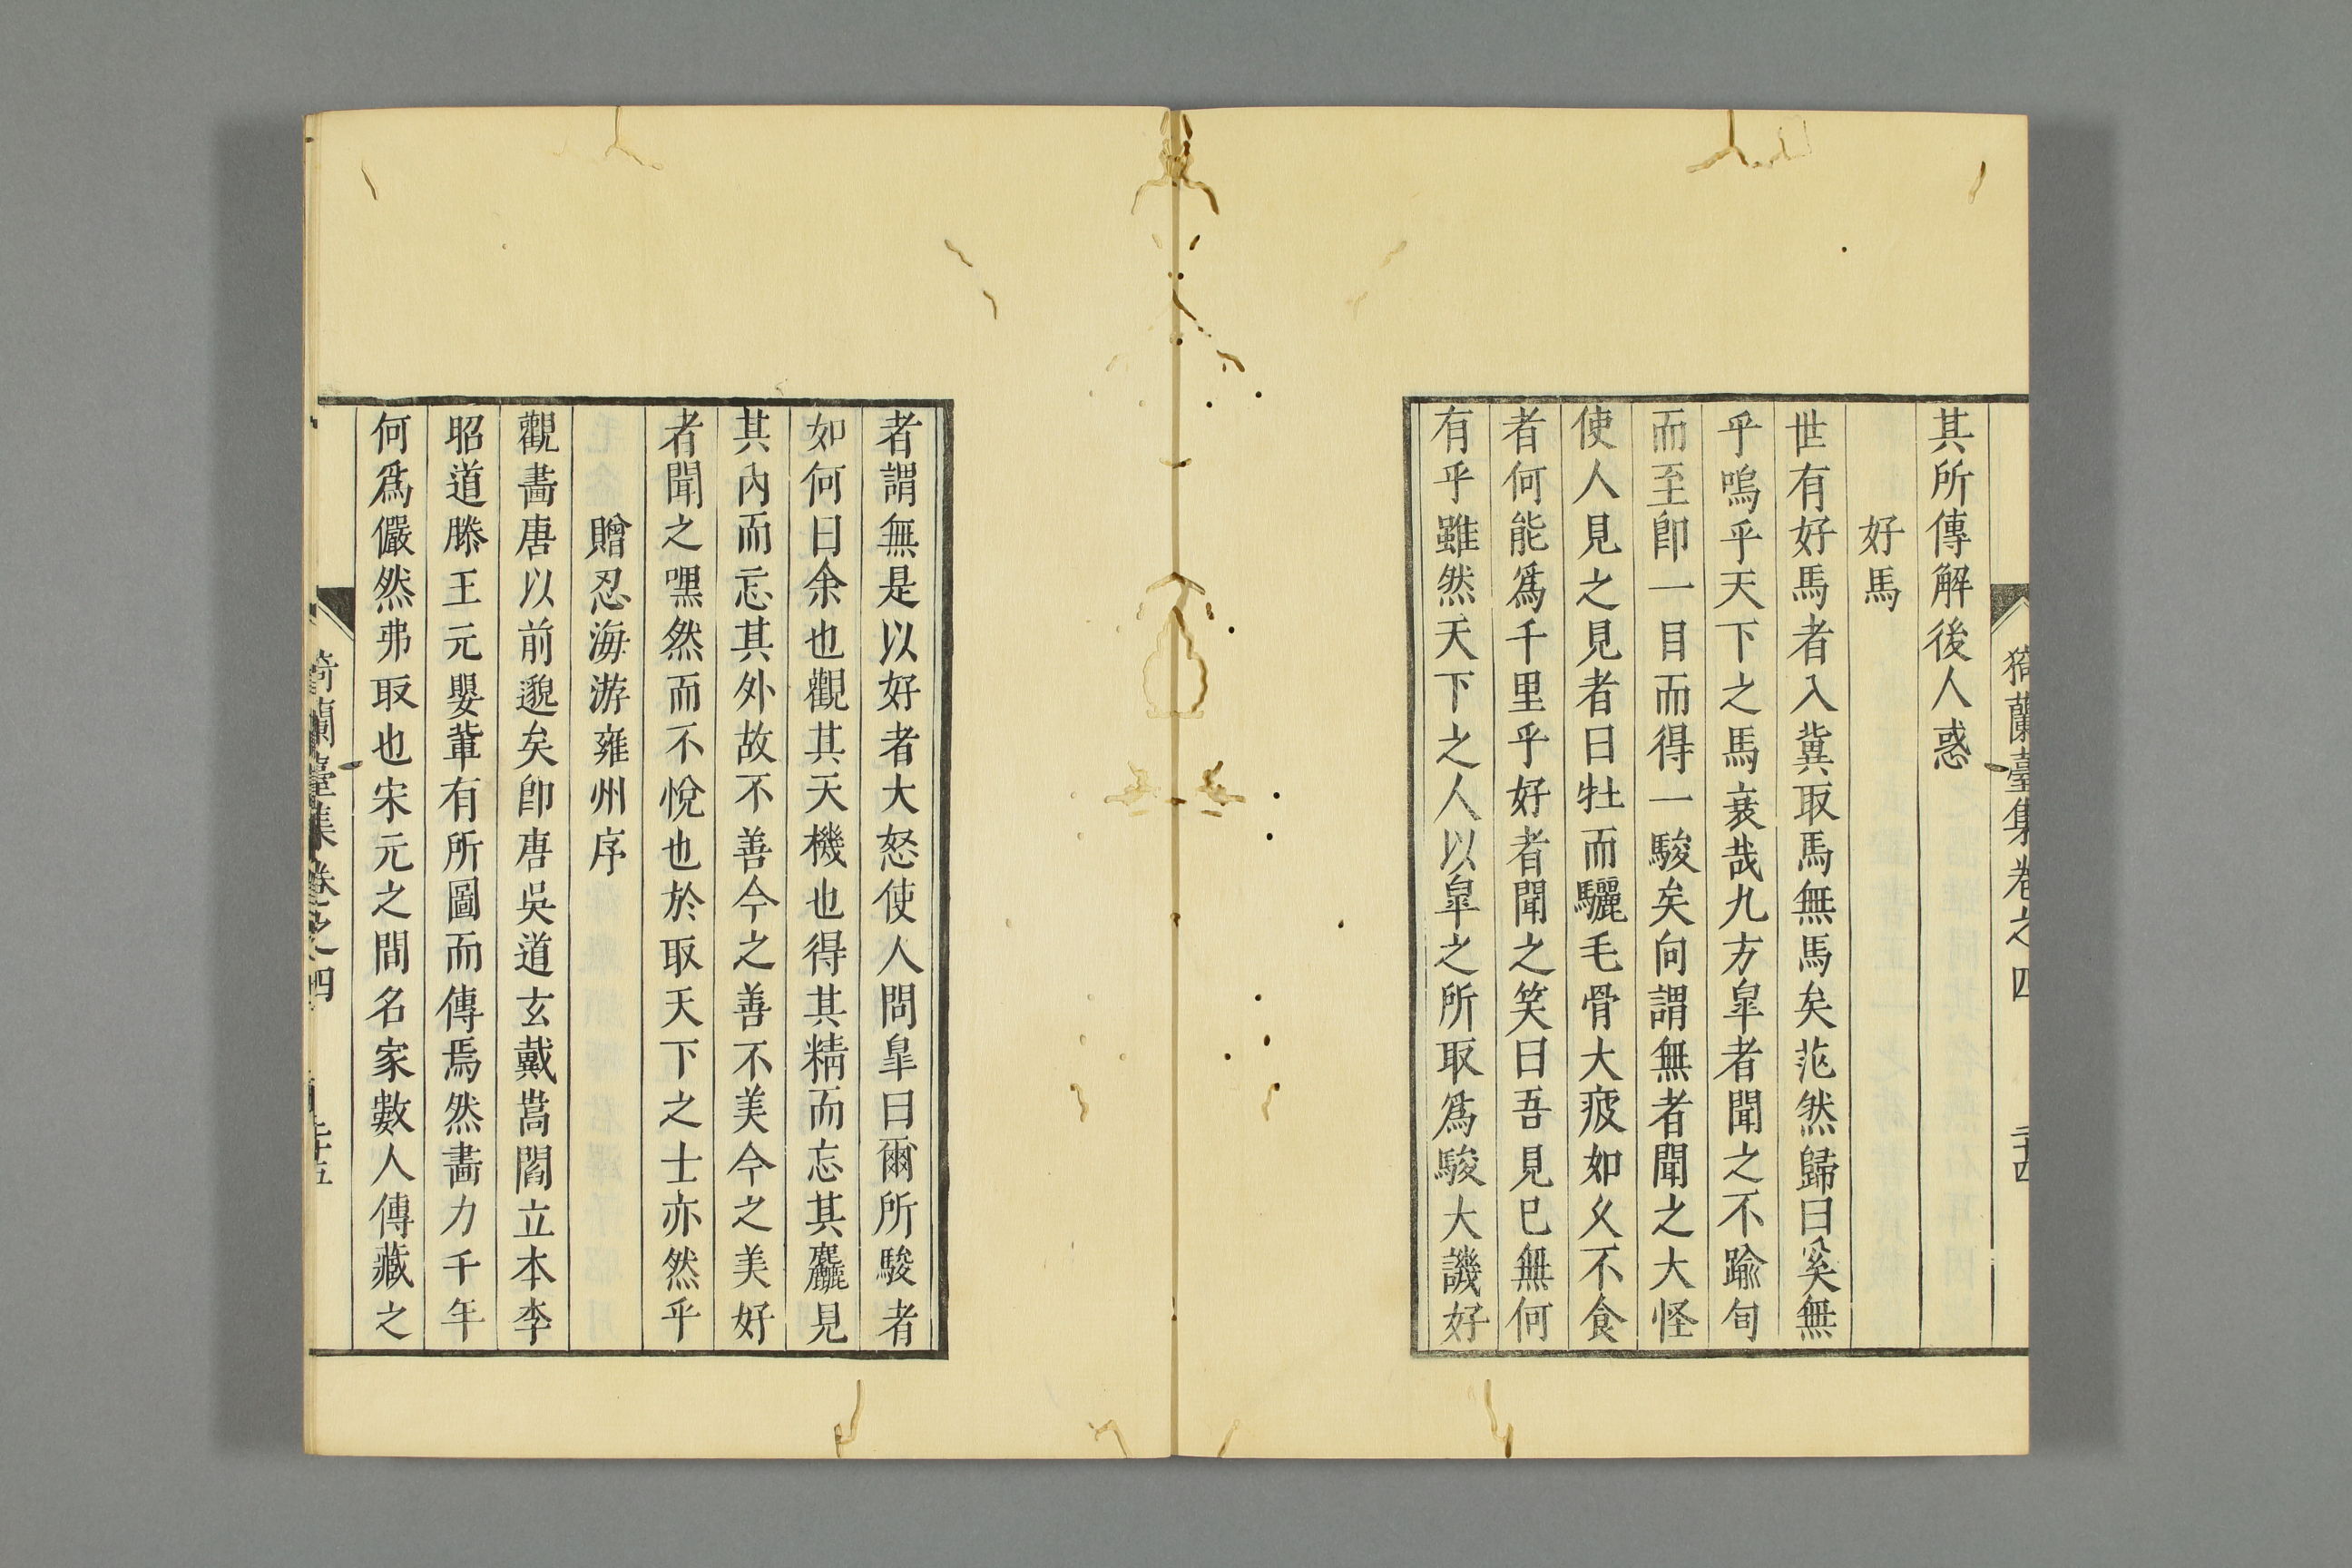 猗蘭臺集卷之四 二十四
其所傳解後人惑
好馬
世有好馬者入冀取馬無馬矣茫然歸曰奚無
乎嗚乎天下之馬衰哉九方皐者聞之不踰旬
而至卽一目而得一駿矣向謂無者聞之大怪
使人見之見者曰牡而驪毛骨大疲如久不食
者何能爲千里乎好者聞之笑曰吾見已無何
有乎雖然天下之人以皐之所取爲駿大譏好
者謂無是以好者大怒使人問皐曰爾所駿者
如何曰余也觀其天機也得其精而忘其麤見
其內而忘其外故不善今之善不美今之美好
者聞之嘿然而不悅也於取天下之士亦然乎
贈忍海游雍州序
觀畵唐以前邈矣卽唐吳道玄戴嵩閻立本李
昭道滕王元嬰軰有所圖而傳焉然畵力千年
何爲儼然弗取也宋元之間名家數人傳藏之
猗蘭臺集卷之四 二十五